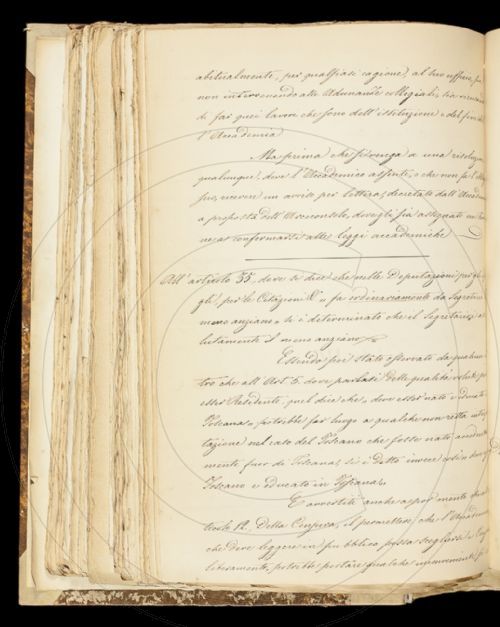 abitualmente, per qualsiasi cagione, al suo uffizio,
non intervenendo alle Adunanze collegiali, sia
di far quei lavori che sono dell'istituzione e del
l'Accademia
Ma prima che si venga a una
qualunque, deve l'Accademico assente, o che non fa l'
ricevere un avviso per lettera, decretata dall'
a proposta dell'Arciconsolo, dove gli sia assegnato un
ne a conformarsi alle leggi accademiche
All'articolo 35, dove si dice che nelle Deputazioni
gli, per le Citazioni &c. fa ordinariamente da Segretario
meno anziano, si è determinato che il Segretario
lutamente il meno anziano
Essendo poi stato osservato da qualcun
tro che all'Art. 5. dove parlasi delle qualità volute
esser Residente, quel dire che, deve esser nato e educato
Toscana, potrebbe far luogo a qualche non retta
tazione nel caso del Toscano che fosse nato
mente fuor di Toscana, si è detto invece
Toscano e educato in Toscana.
E avvertiti anche
ticolo 12. Della Censura, il permettere che l'Accademico
che deve leggere in pubblico possa scegliersi
liberamente, potrebbe portare qualche inconveniente